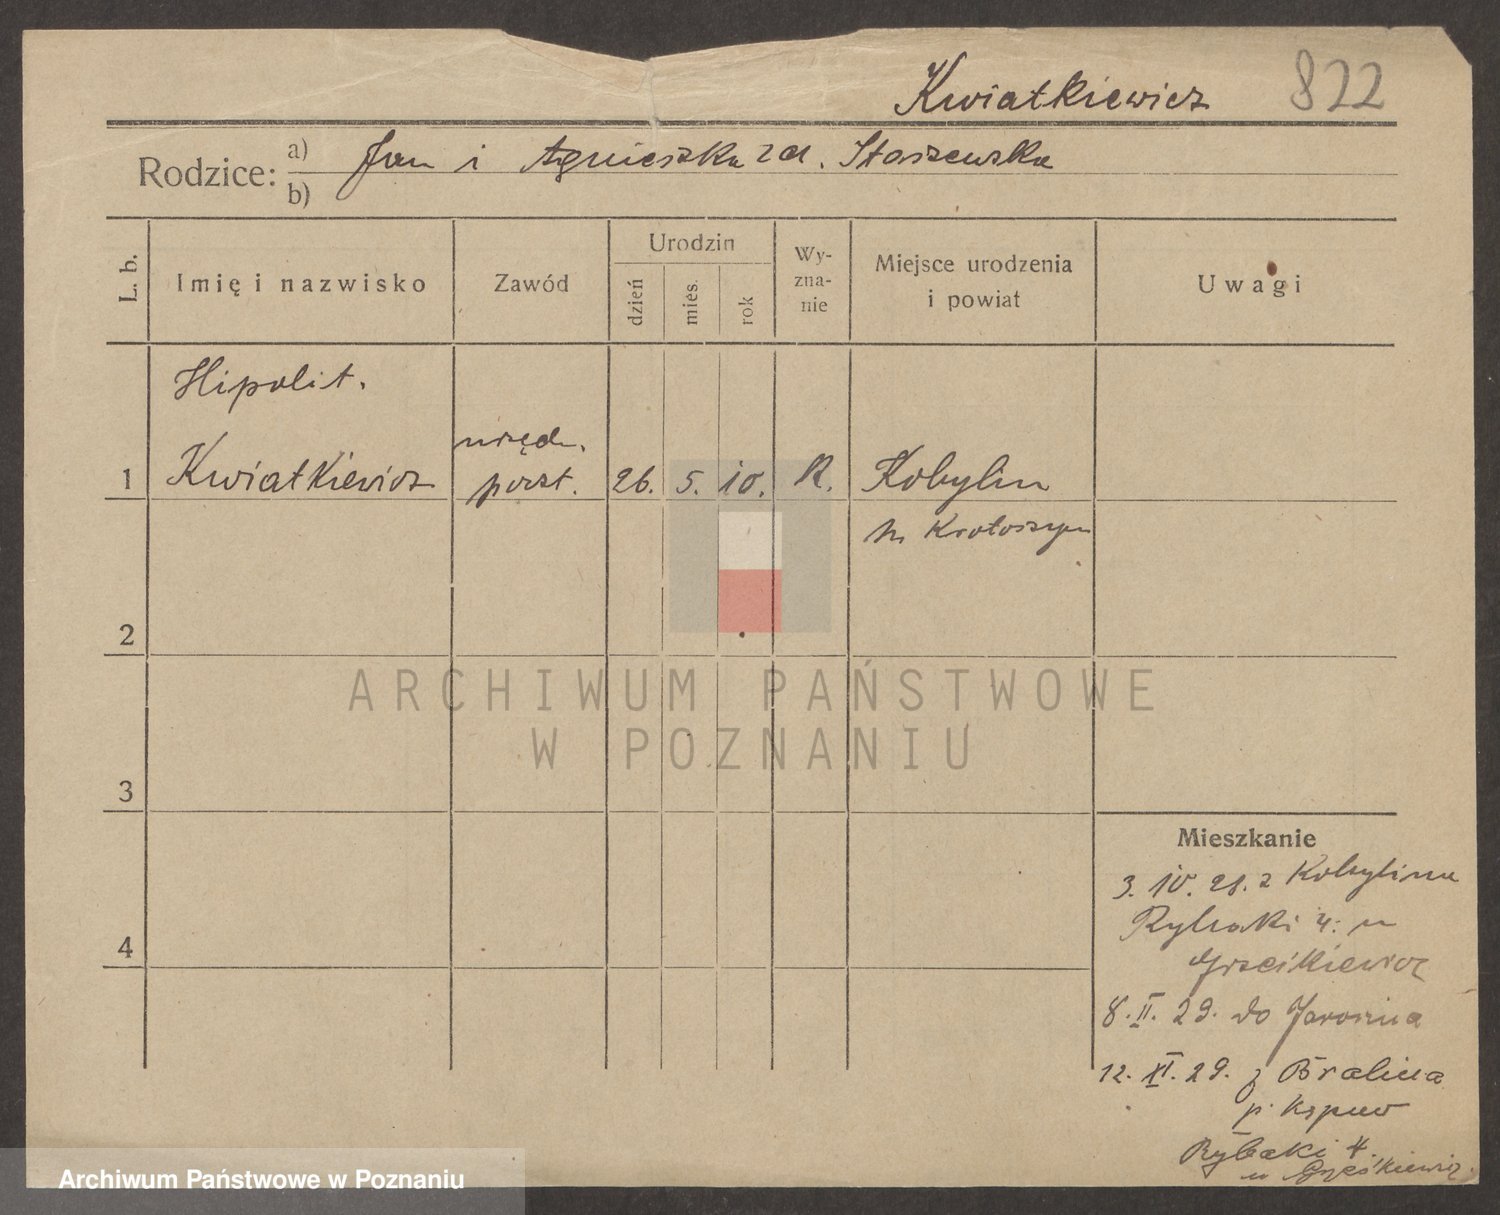 Kwiatkiewicz 822
Rodzice: a) Jan i Agnieszka zd. Staszewska
b)
L. b.
Imię i nazwisko
Zawód
Urodzin
dzień
mies.
rok
Wy-
zna-
nie
Miejsce urodzenia
i powiat
Uwagi
Hipolit.
1 Kwiatkiewicz urzędn. poczt. 26. 5. 10. R. Kobylin
Krotoszyn
2
3
4
ARCHIWUM PAŃSTWOWE
W POZNANIU
Mieszkanie
3. 10. 28. z Kobylina
Rybaki 4. u
Grześkiewicz
8. II. 29. do Jarocina
12. XI. 29. z Bralina
p. Kępno
Rybaki 4.
u Grześkiewicz
Archiwum Państwowe w Poznaniu